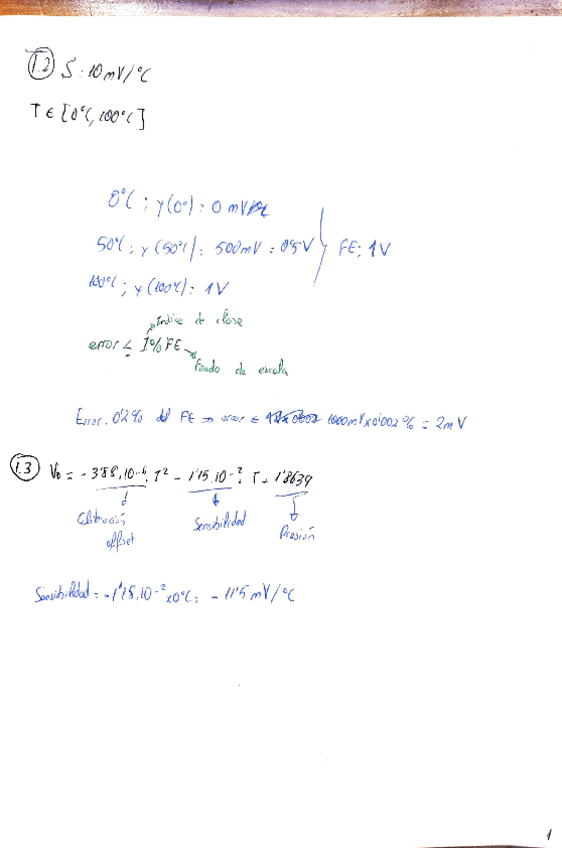 1.2 S: 10 mV/°C
T ∈ [0°C, 100°C]
0°C ; y(0°): 0 mV
50°C ; y(50°C): 500mV = 0'5V
FE: 1V
100°C ; y(100°C): 1V
Indice de clase
error ≤ 1% FE
Fondo de escala
Error. 0'2% del FE ⇒ error ≤ 1000mV x 0'002 % = 2mV
1.3 V₀ = -3'88.10⁻⁶. T² - 1'15.10⁻². T + 1'8639
Calibración offset
Sensibilidad
Presión
Sensibilidad = -1'15.10⁻² x 0°C; - 11'5 mV/°C
1